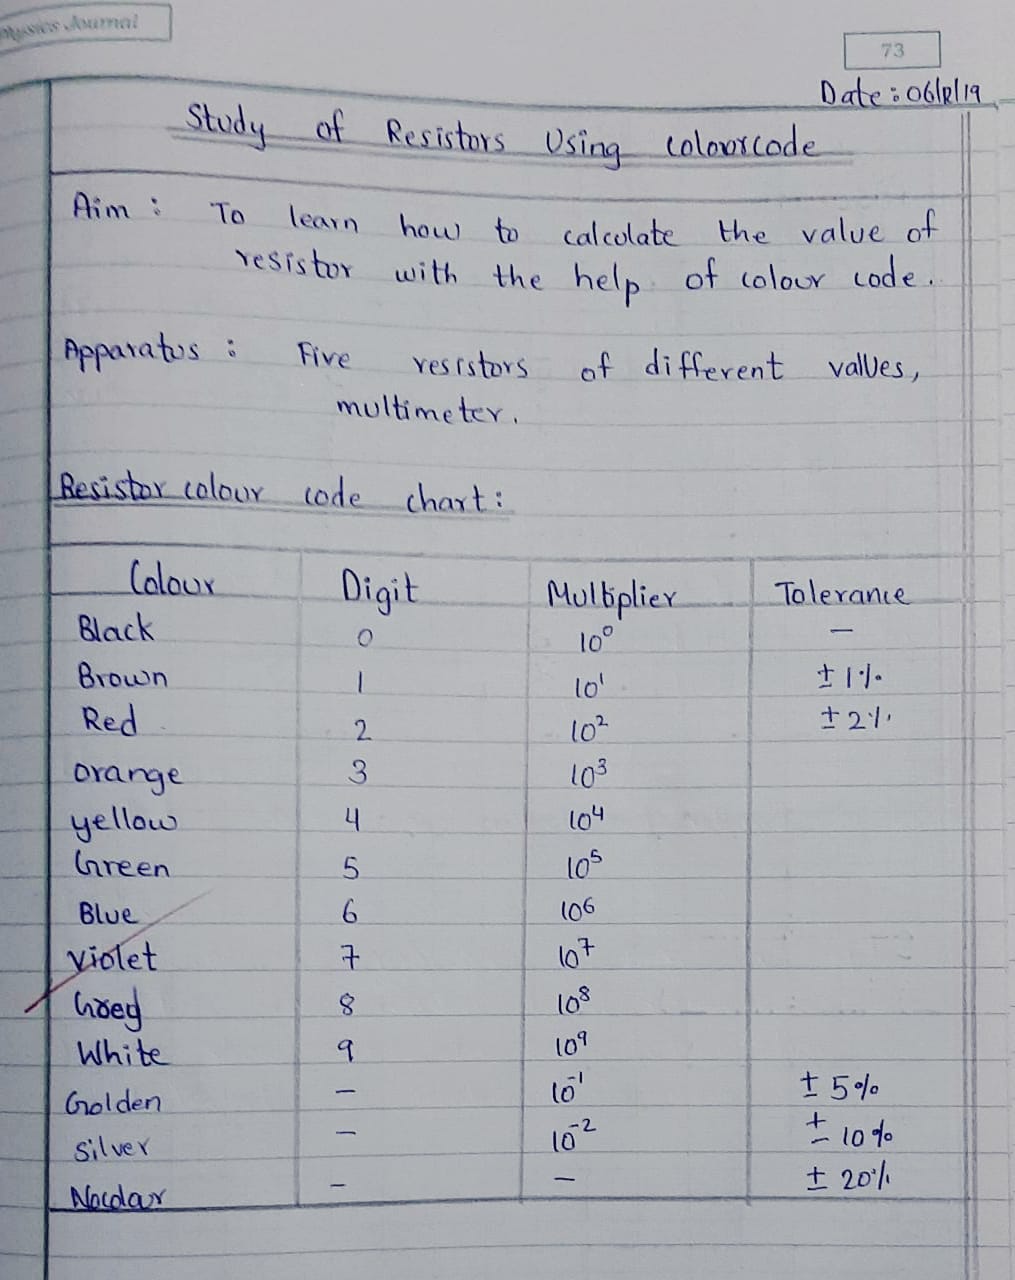 Physics Journal
73
Date : 06/12/19
Study of Resistors Using colourcode
Aim : To learn how to calculate the value of
resistor with the help of colour code.
Apparatus : Five resistors of different values,
multimeter.
Resistor colour code chart :
Colour Digit Multiplier Tolerance
Black 0 10⁰ –
Brown 1 10¹ ± 1%
Red 2 10² ± 2%
orange 3 10³
yellow 4 10⁴
Green 5 10⁵
Blue 6 10⁶
Violet 7 10⁷
8 10⁸
White 9 10⁹
Golden – 10⁻¹ ± 5%
silver – 10⁻² ± 10%
– – ± 20%